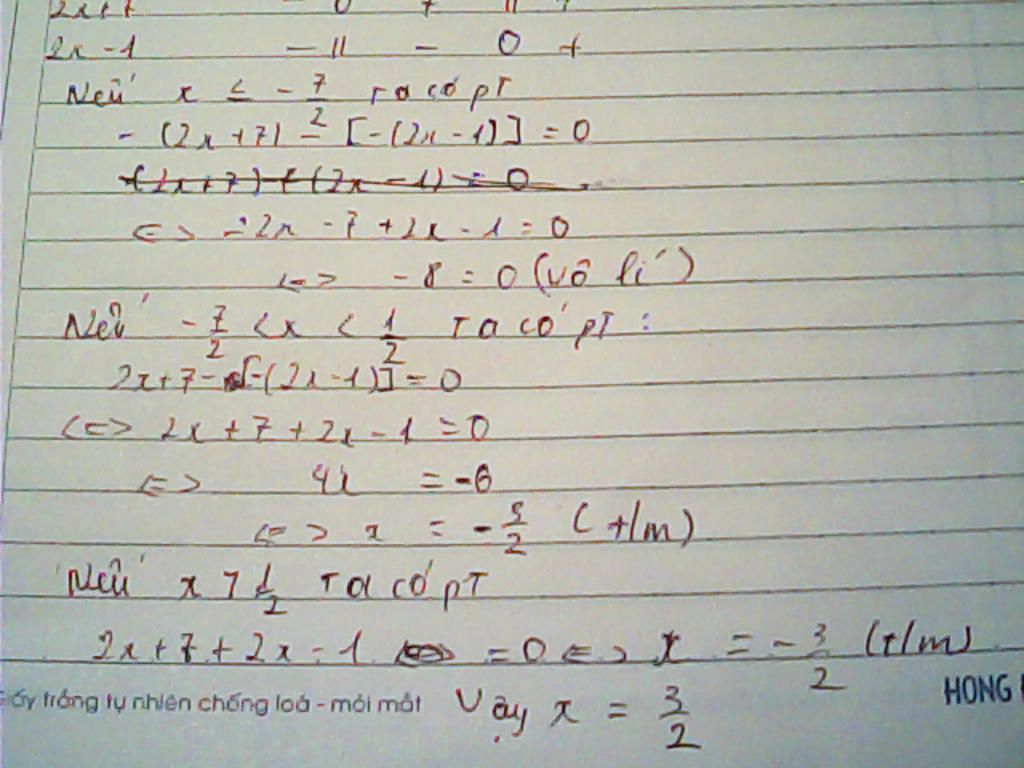 2x+7 - 0 + || +
2x-1 - || - 0 +
Nếu x ≤ - 7/2 ta có pT
- (2x+7) - [-(2x-1)] = 0
<=> -2x - 7 + 2x - 1 = 0
<=> -8 = 0 (vô lí)
Nếu - 7/2 < x < 1/2 Ta có pT :
2x+7-[-(2x-1)] = 0
<=> 2x + 7 + 2x - 1 = 0
<=> 4x = -6
<=> x = - 3/2 (t/m)
Nếu x > 1/2 Ta có pT
2x + 7 + 2x - 1 = 0 <=> x = - 3/2 (t/m)
Giấy trắng tự nhiên chống loá - mỏi mắt HONG
Vậy x = 3/2